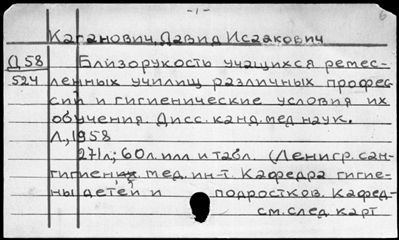 -1-
6
Каганович, Давид Исаакович
Д58 Близорукость учащихся ремес-
524 ленных училищ различных профес-
сий и гигиенические условия их
обучения. Дисс. канд. мед. наук.
Л., 1958
271л; 60л. илл и табл. (Ленигр. сан-
гигиен. мед. ин-т. Кафедра гигие-
ны детей и подростков. Кафед-
см. след карт